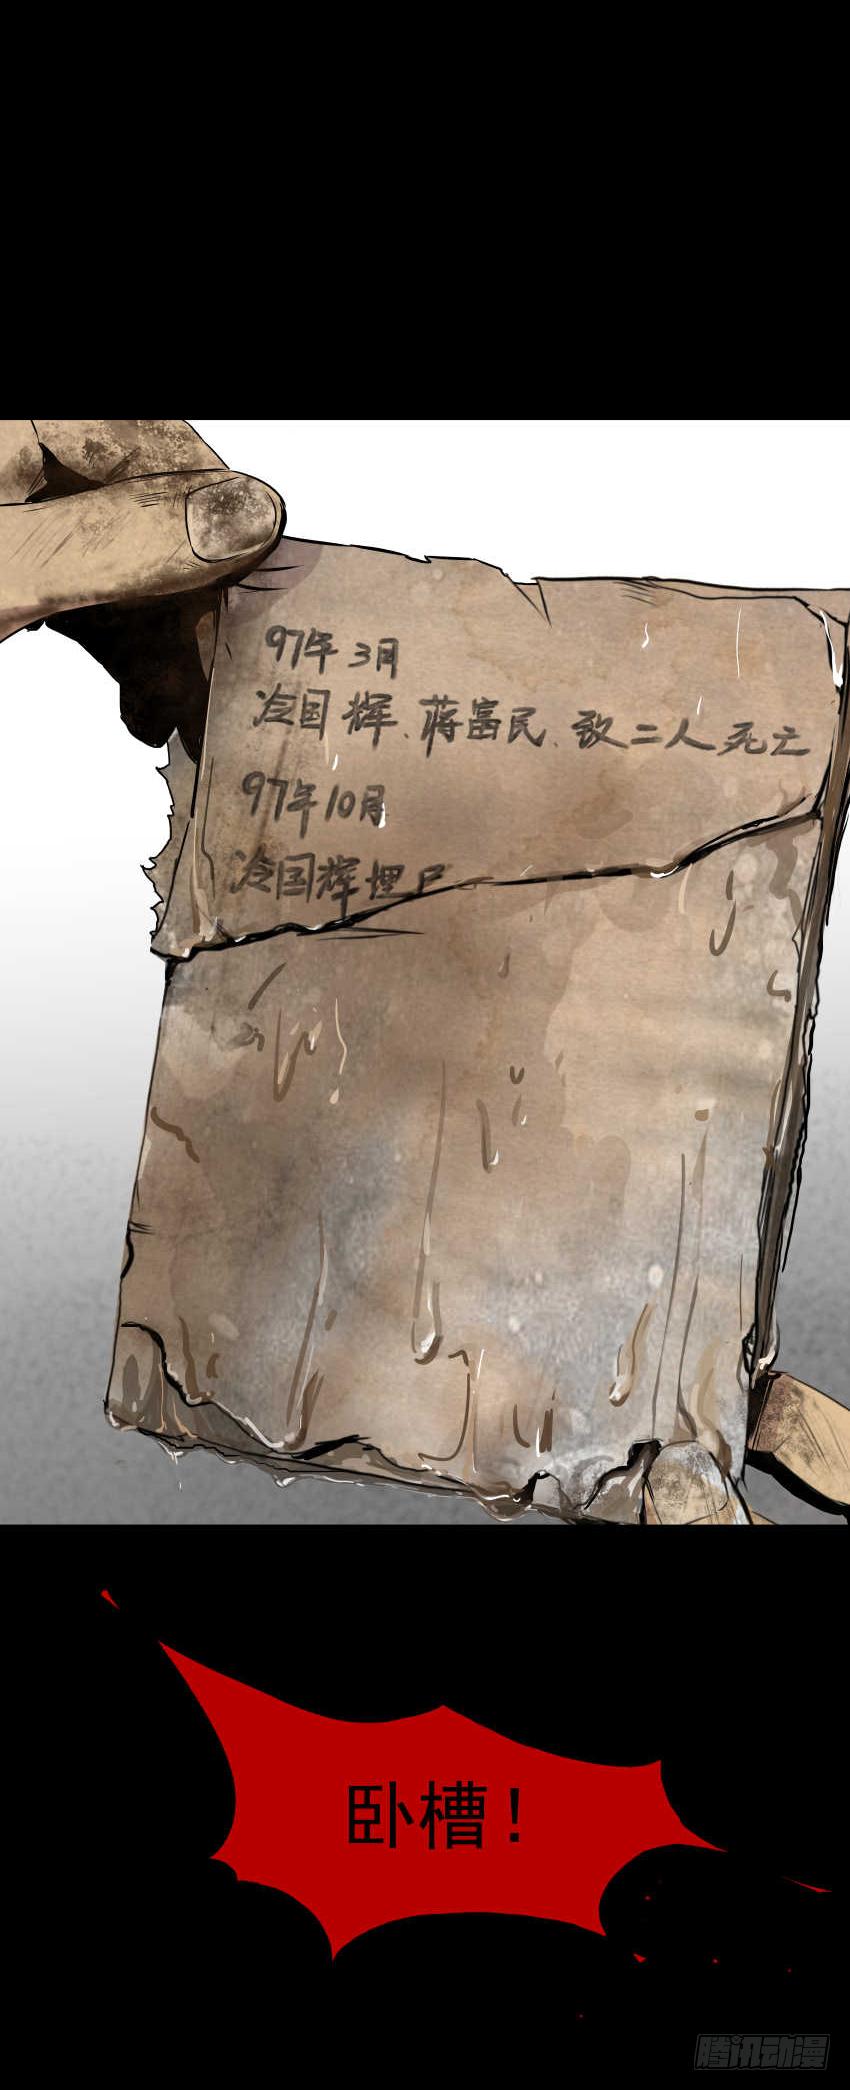 97年3月
冷国辉、蒋富民、致二人死亡
97年10月
冷国辉埋尸
卧槽！
腾讯动漫